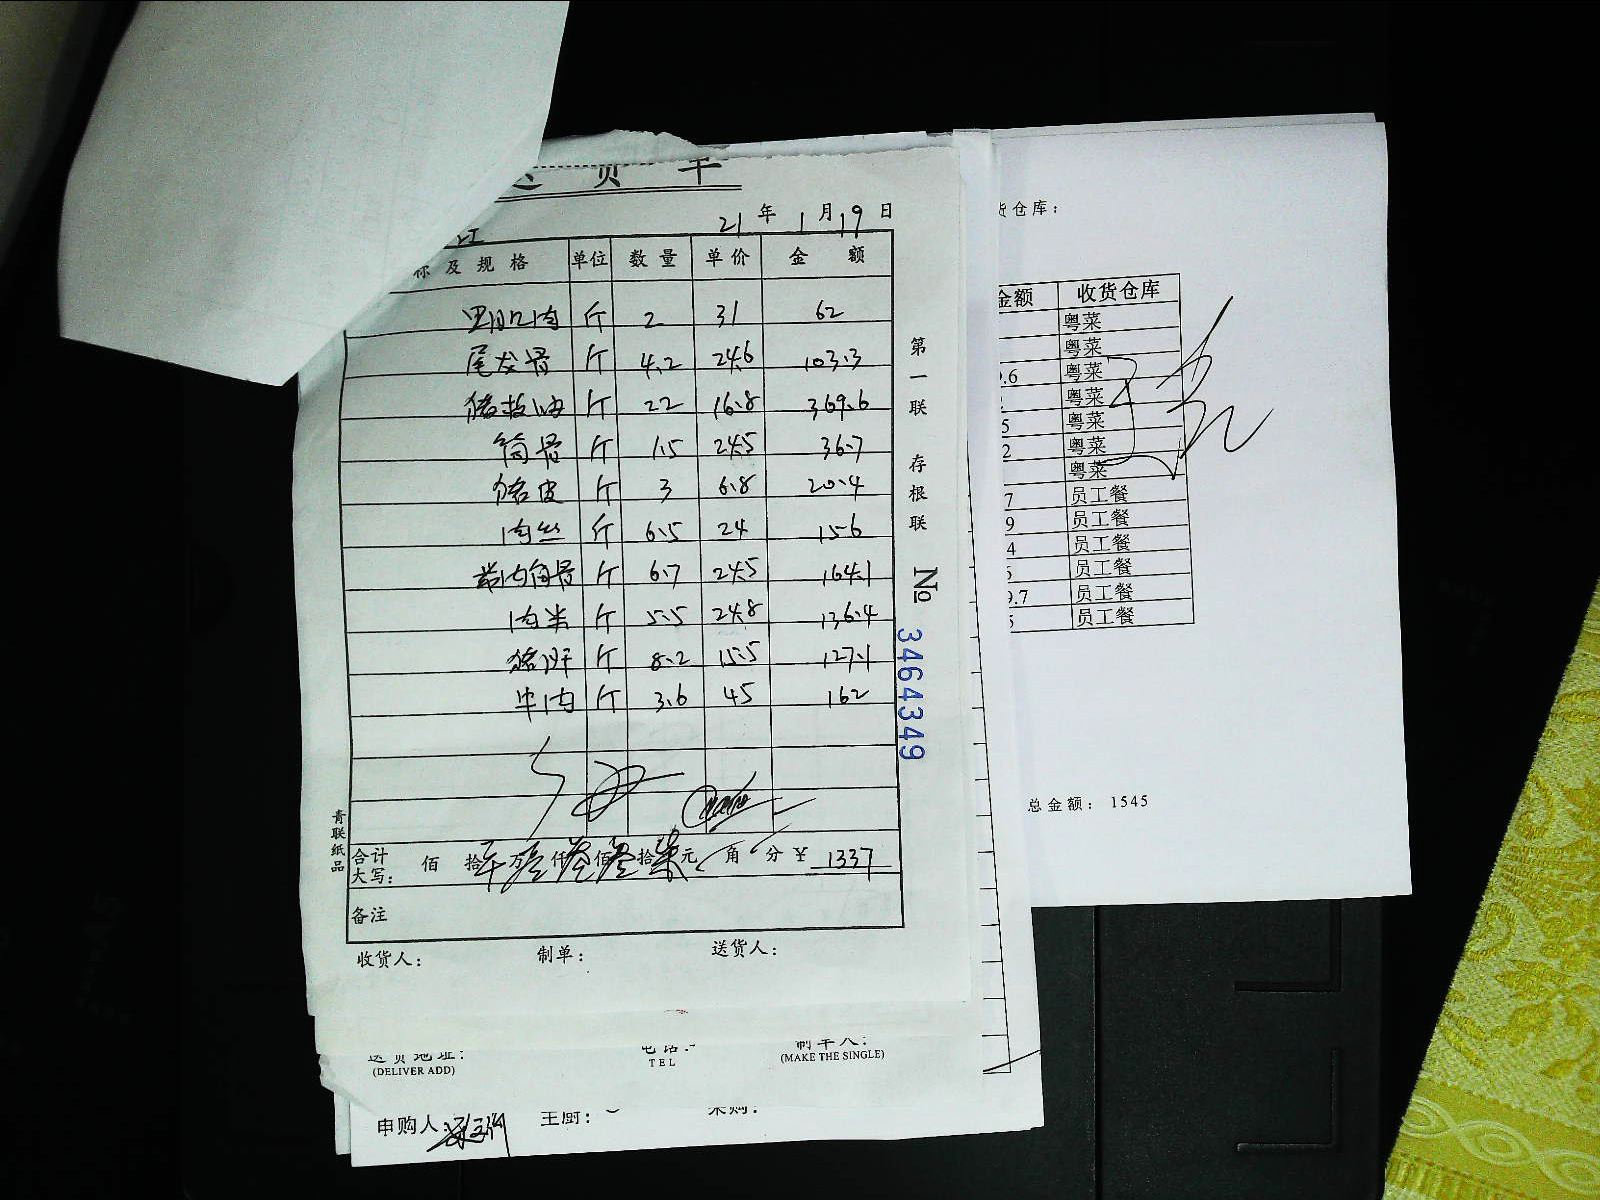 送货单
21年1月19日
江
称及规格 单位 数量 单价 金额
里肌肉 斤 2 31 62
尾龙骨 斤 4.2 24.6 103.3
猪板油 斤 22 16.8 369.6
筒骨 斤 1.5 24.5 36.7
猪皮 斤 3 6.8 20.4
肉丝 斤 6.5 24 156
斤 6.7 24.5 164.1
肉米 斤 5.5 24.8 136.4
猪肝 斤 8.2 15.5 127.1
牛肉 斤 3.6 45 162
合计大写: 佰 拾 万 仟 佰 拾 元 角 分 ¥ 1337
备注
收货人: 制单: 送货人:
第一联 存根联 № 3464349
青联纸品
送货地址: 电话: 制单人:
(DELIVER ADD) TEL (MAKE THE SINGLE)
申购人: 主厨: 采购:
货仓库:
金额 收货仓库
粤菜
粤菜
.6 粤菜
粤菜
5 粤菜
2 粤菜
粤菜
7 员工餐
9 员工餐
4 员工餐
员工餐
9.7 员工餐
员工餐
总金额: 1545